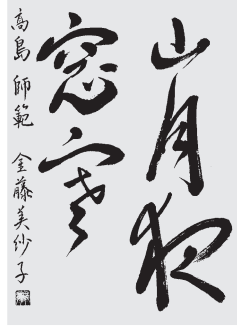 山月夜
窓寒
高島 師範 金藤美紗子